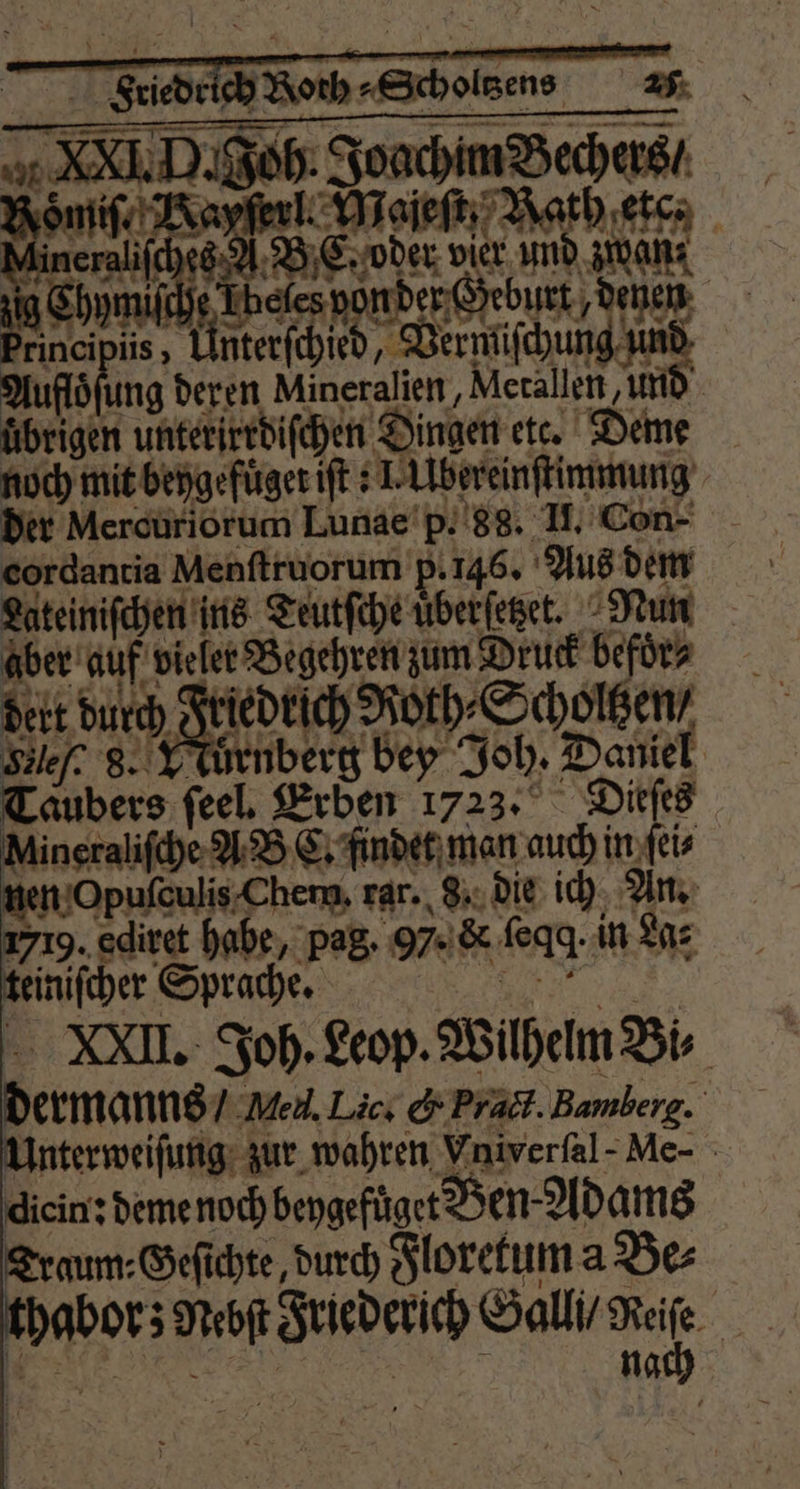 Friedrich Roth-Scholtzens 25.
XXI. D. Joh. Joachim Bechers/
Römiſ. Kayſerl. Majeſt. Rath etc.
Mineraliſches A B C. oder vier und zwan-
zig Chymiſche Theſes von der Geburt, denen
Principiis, Unterſchied, Vermiſchung und
Auflöſung deren Mineralien, Metallen, und
übrigen unterirrdiſchen Dingen etc. Deme
noch mit beygefüget iſt: I. Ubereinſtimmung
der Mercuriorum Lunae p. 88. II. Con-
cordantia Menſtruorum p. 146. Aus dem
Lateiniſchen ins Teutſche überſetzet. Nun
aber auf vieler Begehren zum Druck beför-
dert durch Friedrich Roth-Scholtzen/
Sileſ. 8. Nürnberg bey Joh. Daniel
Taubers ſeel. Erben 1723. Dieſes
Mineraliſche A B C. findet man auch in ſei-
nen Opuſculis Chem. rar. 8. die ich An.
1719. ediret habe, pag. 97. & ſeqq. in La-
teiniſcher Sprache.
XXII. Joh. Leop. Wilhelm Bi-
dermanns / Med. Lic. & Pract. Bamberg.
Unterweiſung zur wahren Vniverſal-Me-
dicin: deme noch beygefüget Ben-Adams
Traum-Geſichte, durch Floretum a Be-
thabor; Nebſt Friederich Galli/ Reiſe
nach